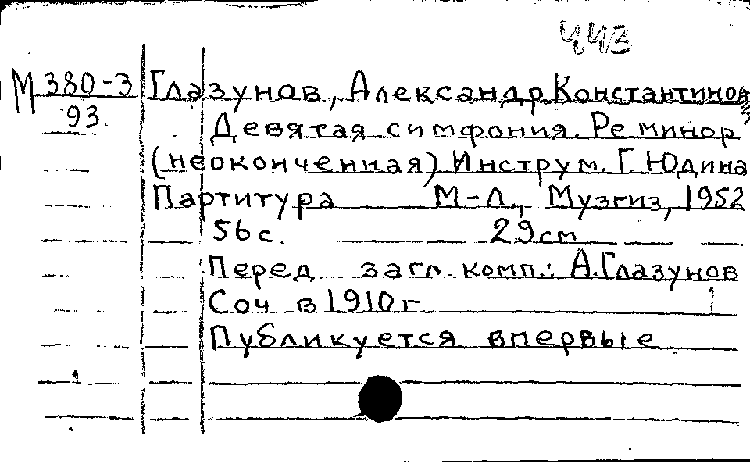 443
М 380-3 Глазунов, Александр Константинов
93 Девятая симфония. Ре минор
(неоконченная) Инструм. Г. Юдина
Партитура М-Л., Музгиз, 1952
56 с. 29 см
Перед загл. комп.: А. Глазунов
Соч в 1910 г
Публикуется впервые